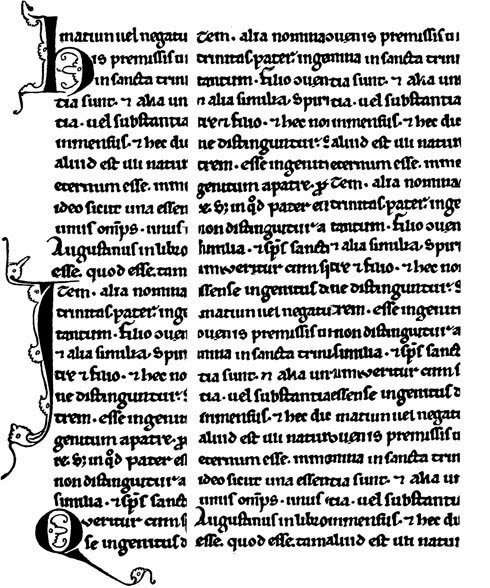 matiun uel negatu
His premissis ii
in sancta trini
tia sunt. ⁊ alia un
tia. uel substantia
inmensus. ⁊ hec du
aliud est uii natur
eternum esse. inmi
ideo sicut una essen
unus om̄ps. unus
Augustinus in libro
esse. quod esse. tam
Item. alia nomina
trinitas. pater. inge
tantum. filio ouen
⁊ alia similia. Spiri
tre ⁊ filio. ⁊ hec no
ue distinguntur. S
trem. esse ingeniti
genitum a patre. ꝓ
re. S; in qd̄ pater en
non distinguitur a
similia. ⁊ sp̄s sanct
Queritur cum s
se ingenitus d
Tem. alia nomina ouis premissis ii
trinitas. pater. ingemina in sancta trini
tantum. filio ouentia sunt. ⁊ alia un
⁊ alia similia. Spiritia. uel substantia
tre ⁊ filio. ⁊ hec no inmensus. ⁊ hec du
ue distinguntur. Saliud est uii natur
trem. esse ingeniti eternum esse. inmi
genitum a patre. ꝓ Tem. alia nomina
re. S; in qd̄ pater en trinitas. pater. inge
non distinguitur a tantum. filio ouen
similia. ⁊ sp̄s sanct ⁊ alia similia. Spiri
inueritur cum si tre ⁊ filio. ⁊ hec no
ssense ingenitus d ue distinguntur. S
matiun uel negatu trem. esse ingeniti
ouens premissis ii non distinguitur a
mina in sancta trini similia. ⁊ sp̄s sanct
tia sunt. ⁊ alia un inueritur cum s
tia. uel substantia essense ingenitus d
inmensus. ⁊ hec du matiun uel negatu
aliud est uii natur ouens premissis ii
eternum esse. inmomina in sancta trini
ideo sicut una essentia sunt. ⁊ alia un
unus om̄ps. unus tia. uel substantia
Augustinus in libro inmensus. ⁊ hec du
esse. quod esse. tam aliud est uii natur